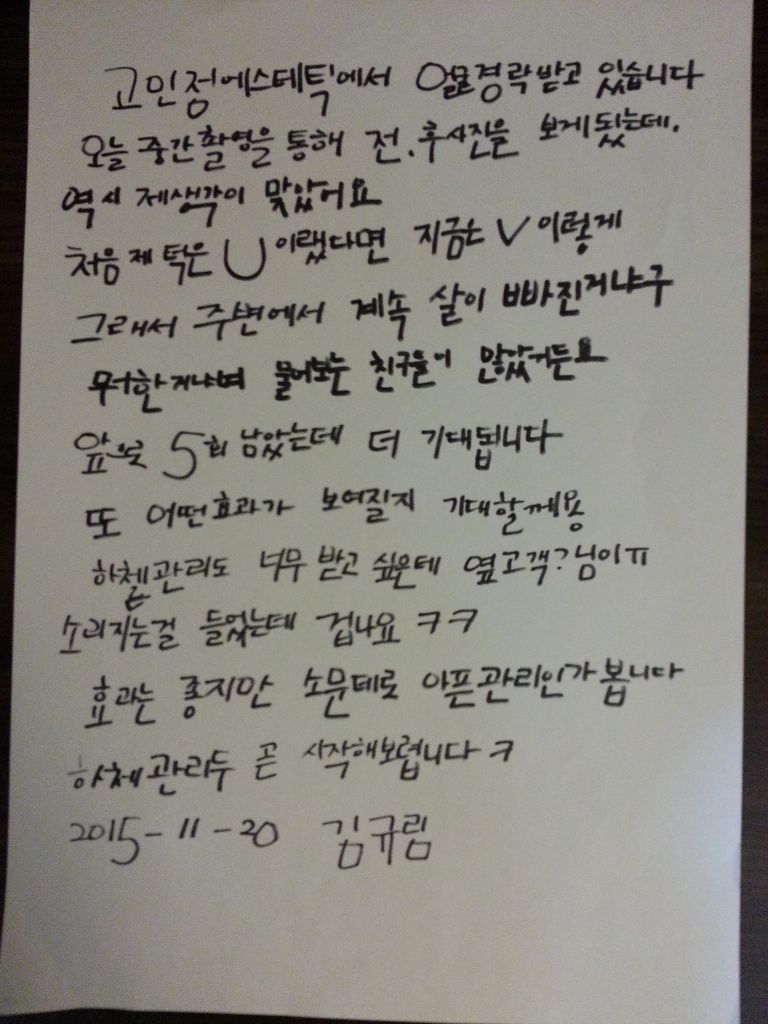 고민정에스테틱에서 얼굴경락받고 있습니다
오늘 중간촬영을 통해 전.후사진을 보게됬는데.
역시 제생각이 맞았어요
처음 제 턱은 U 이랬다면 지금는 V 이렇게
그래서 주변에서 계속 살이 빠진거냐구
뭐한거냐며 물어보는 친구들이 많았거든요
앞으로 5회 남았는데 더 기대됩니다
또 어떤효과가 보여질지 기대할께용
하체관리도 너무 받고 싶은데 옆고객?님이ㅠ
소리지는걸 들었는데 겁나요 ㅋㅋ
효과는 좋지만 소문데로 아픈관리인가봅니다
하체관리두 곧 시작해보렵니다 ㅋ
2015-11-20 김규림